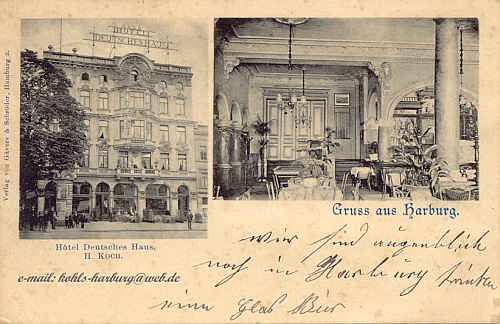 HÔTEL
DEUTSCHES HAUS
Verlag von Gävers & Schröder, Hamburg 5.
Gruss aus Harburg.
Hôtel Deutsches Haus,
H. Koch.
e-mail: kohls-harburg@web.de
wir sind augenblick
noch in Harburg trinken
einn Glas Bier